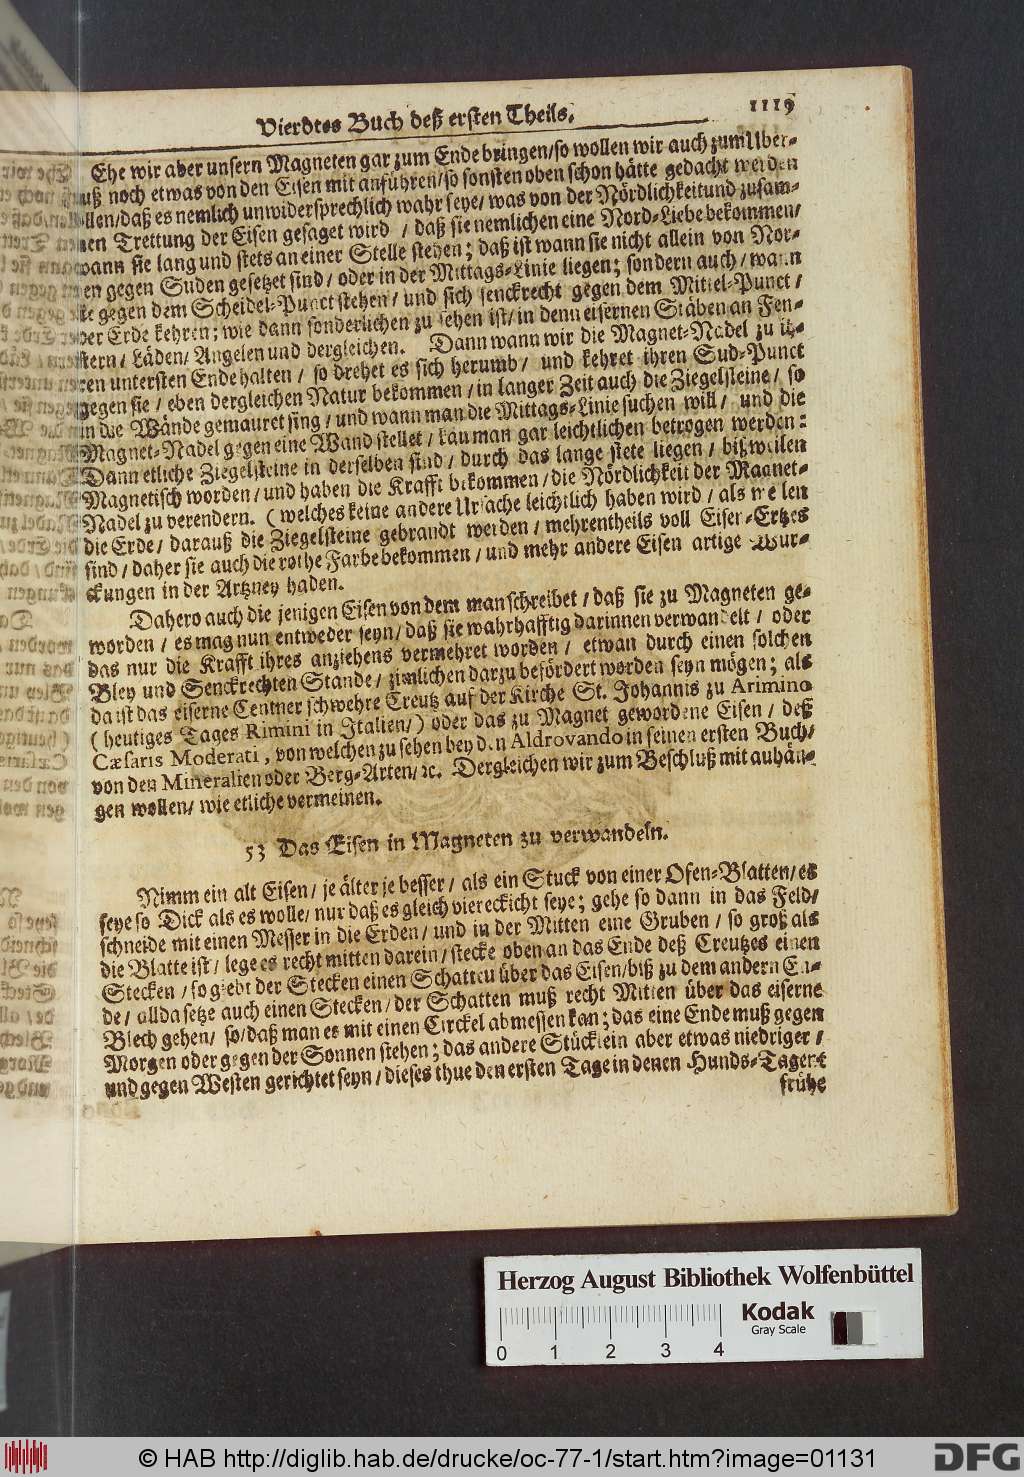 Vierdtes Buch deß ersten Theils. 1119
Ehe wir aber unsern Magneten gar zum Ende bringen/so wollen wir auch zum Uber-
uß noch etwas von den Eisen mit anführen/so sonsten oben schon hätte gedacht werden
llen/daß es nemlich unwidersprechlich wahr seye/was von der Nördlichkeit und zusam-
nen Trettung der Eisen gesaget wird / daß sie nemlichen eine Nord-Liebe bekommen/
wann sie lang und stets an einer Stelle stehen; daß ist wann sie nicht allein von Nor-
en gegen Suden gesetzet sind/ oder in der Mittags-Linie liegen; sondern auch/ wann
sie gegen dem Scheidel-Punct stehen/ und sich senckrecht gegen dem Mittel-Punct /
der Erde kehren; wie dann sonderlichen zu sehen ist/ in denn eisernen Stäben an Fen-
stern/ Läden/ Angelen und dergleichen. Dann wann wir die Magnet-Nadel zu ih-
ren untersten Ende halten / so drehet es sich herumb/ und kehret ihren Sud-Punct
gegen sie / eben dergleichen Natur bekommen / in langer Zeit auch die Ziegelsteine/ so
in die Wände gemauret sing / und wann man die Mittags-Linie suchen will/ und die
Magnet-Nadel gegen eine Wand stellet / kan man gar leichtlichen betrogen werden:
Dann etliche Ziegelsteine in derselben sind / durch das lange stete liegen / bißweilen
Magnetisch worden / und haben die Krafft bekommen / die Nördlichkeit der Magnet-
Nadel zu verendern. (welches keine andere Ursache leichtlich haben wird / als weilen
die Erde/ darauß die Ziegelsteine gebrandt werden / mehrentheils voll Eisen-Ertzes
sind / daher sie auch die rothe Farbe bekommen / und mehr andere Eisen artige Wür-
ckungen in der Artzney haben.
Dahero auch die jenigen Eisen von dem man schreibet / daß sie zu Magneten ge-
worden / es mag nun entweder seyn/ daß sie wahrhafftig darinnen verwandelt / oder
das nur die Krafft ihres anziehens vermehret worden / etwan durch einen solchen
Bley und Senckrechten Stande / zimlichen darzu befördert worden seyn mögen; als
da ist das eiserne Centner schwehre Creutz auf der Kirche St. Johannis zu Arimino
( heutiges Tages Rimini in Italien/ ) oder das zu Magnet gewordene Eisen / deß
Cæsaris Moderati, von welchen zu sehen bey den Aldrovando in seinen ersten Buch/
von den Mineralien oder Berg-Arten/ ꝛc. Dergleichen wir zum Beschluß mit anhän-
gen wollen/ wie etliche vermeinen.
53 Das Eisen in Magneten zu verwandeln.
Nimm ein alt Eisen / je älter je besser / als ein Stuck von einer Ofen-Blatten/ es
seye so Dick als es wolle/ nur daß es gleich viereckicht seye; gehe so dann in das Feld/
schneide mit einen Messer in die Erden/ und in der Mitten eine Gruben / so groß als
die Blatte ist / lege es recht mitten darein / stecke oben an das Ende deß Creutzes einen
Stecken / so giebt der Stecken einen Schatten über das Eisen/biß zu dem andern En-
de / allda setze auch einen Stecken / der Schatten muß recht Mitten über das eiserne
Blech gehen / so/daß man es mit einen Circkel abmessen kan; das eine Ende muß gegen
Morgen oder gegen der Sonnen stehen; das andere Stücklein aber etwas niedriger /
und gegen Westen gerichtet seyn / dieses thue den ersten Tage in denen Hunds-Tagen
frühe
Herzog August Bibliothek Wolfenbüttel
Kodak
Gray Scale
0 1 2 3 4
© HAB http://diglib.hab.de/drucke/oc-77-1/start.htm?image=01131
DFG